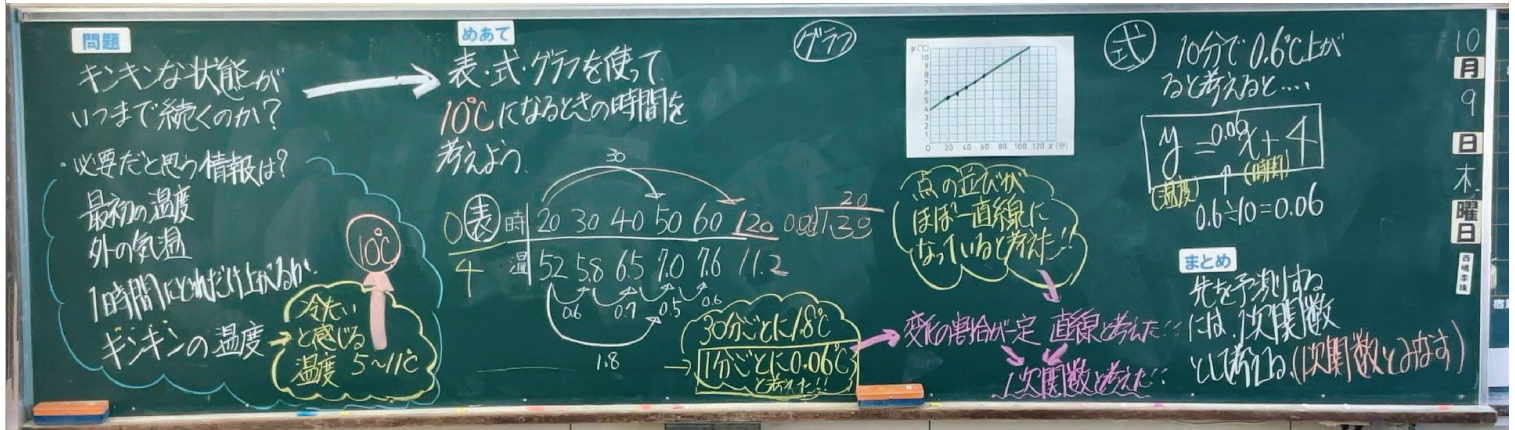 問題
キンキンな状態が
いつまで続くのか?
・必要だと思う情報は?
最初の温度
外の気温
1時間にどれだけ上がるか
キンキンの温度
冷たい
と感じる
温度 5~11℃
10℃
めあて
表・式・グラフを使って
10℃になるときの時間を
考えよう。
30
表
時 0 20 30 40 50 60 120
温 4 5.2 5.8 6.5 7.0 7.6 11.2
0.6 0.7 0.5 0.6
1.8
30分ごとに1.8℃
1分ごとに0.06℃
と考えた!!
グラフ
y(℃)
10
9
8
7
6
5
4
3
2
1
0 20 40 60 80 100 120 x(分)
点の並びが
ほぼ一直線に
なっていると考えた!!
変化の割合が一定
直線と考えた!!
1次関数と考えた!!
式
10分で0.6℃上が
ると考えると....
y=0.06x+4
(温度) (時間)
0.6÷10=0.06
まとめ
先を予測する
には、1次関数
として考える。(1次関数とみなす)
10
月
9
日
木
曜
日